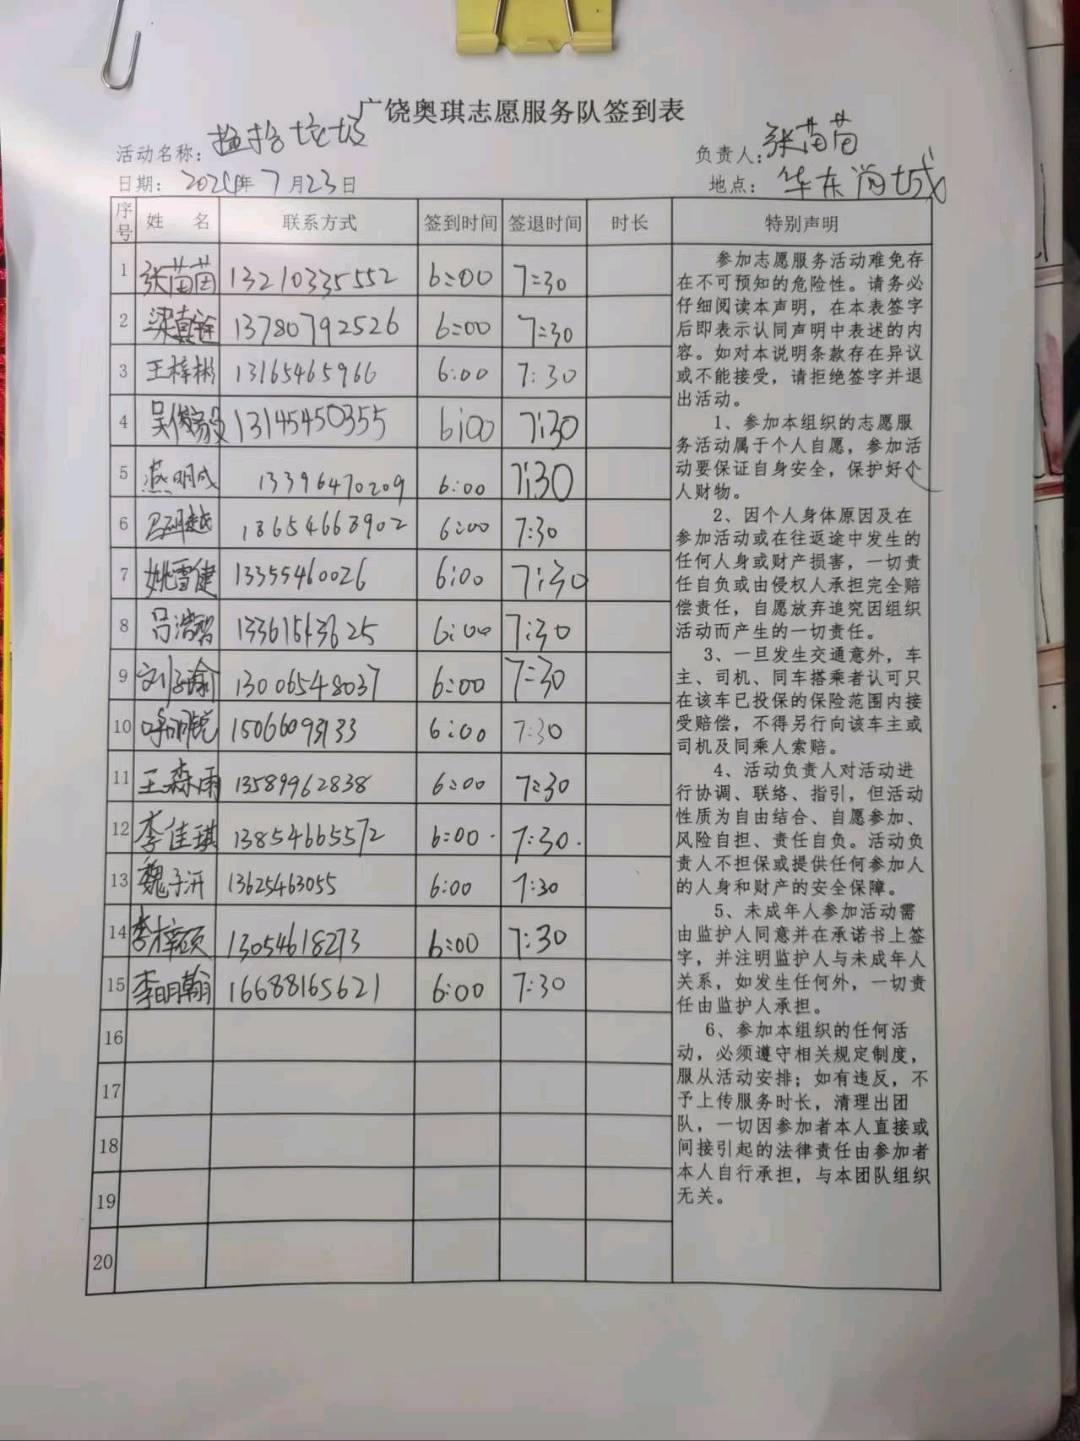 广饶奥琪志愿服务队签到表
活动名称: 捡拾垃圾 负责人: 张苗苗
日期: 年7月23日 地点: 华东尚城
序号 姓 名 联系方式 签到时间 签退时间 时长 特别声明
1 张苗苗 13210335552 6:00 7:30
2 13780792526 6:00 7:30
3 王梓彬 13165465966 6:00 7:30
4 吴俊毅 13145450355 6:00 7:30
5 燕明成 13396470209 6:00 7:30
6 18654668902 6:00 7:30
7 姚雪健 13355460026 6:00 7:30
8 吕浩 6:00 7:30
9 刘子瑜 13006548037 6:00 7:30
10 6:00 7:30
11 王森雨 13589962838 6:00 7:30
12 李佳琪 13854665572 6:00 7:30
13 魏子汧 13625463055 6:00 7:30
14 李梓硕 13054618273 6:00 7:30
15 李明翰 16688165621 6:00 7:30
16
17
18
19
20
参加志愿服务活动难免存
在不可预知的危险性。请务必
仔细阅读本声明，在本表签字
后即表示认同声明中表述的内
容。如对本说明条款存在异议
或不能接受，请拒绝签字并退
出活动。
1、参加本组织的志愿服
务活动属于个人自愿，参加活
动要保证自身安全，保护好个
人财物。
2、因个人身体原因及在
参加活动或在往返途中发生的
任何人身或财产损害，一切责
任自负或由侵权人承担完全赔
偿责任，自愿放弃追究因组织
活动而产生的一切责任。
3、一旦发生交通意外，车
主、司机、同车搭乘者认可只
在该车已投保的保险范围内接
受赔偿，不得另行向该车主或
司机及同乘人索赔。
4、活动负责人对活动进
行协调、联络、指引，但活动
性质为自由结合、自愿参加、
风险自担、责任自负。活动负
责人不担保或提供任何参加人
的人身和财产的安全保障。
5、未成年人参加活动需
由监护人同意并在承诺书上签
字，并注明监护人与未成年人
关系，如发生任何外，一切责
任由监护人承担。
6、参加本组织的任何活
动，必须遵守相关规定制度，
服从活动安排；如有违反，不
予上传服务时长，清理出团
队，一切因参加者本人直接或
间接引起的法律责任由参加者
本人自行承担，与本团队组织
无关。